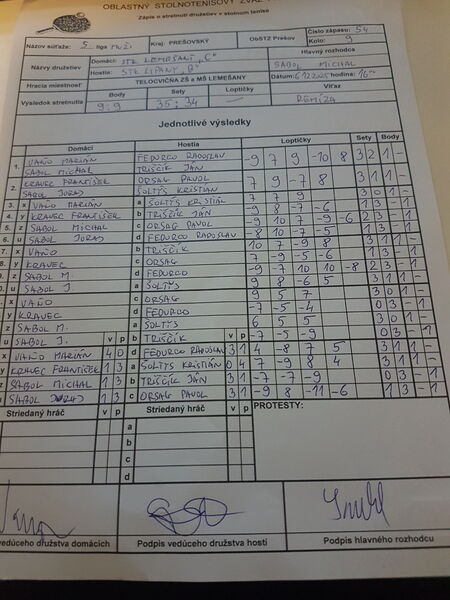 OBLASTNÝ STOLNOTENISOVÝ ZVÄZ
Zápis o stretnutí družstiev v stolnom tenise
Názov súťaže: 5. liga MUŽI Kraj: PREŠOVSKÝ ObSTZ Prešov Číslo zápasu: 54
Kolo: 9
Názvy družstiev Domáci: STK LEMEŠANY "C" Hlavný rozhodca
Hostia: STK LIPANY "B" SABOL MICHAL
Hracia miestnosť TELOCVIČŇA ZŠ a MŠ LEMEŠANY Dátum: 6.12.2025 hodina: 16⁰⁰
Výsledok stretnutia Body Sety Loptičky Víťaz
9:9 35:34 REMÍZA
Jednotlivé výsledky
Domáci Hostia Loptičky Sety Body
1. VAŇO MARIÁN FEDURCO RADOSLAV -9 7 9 -10 8 3 2 1 -
SABOL MICHAL TRIŠČÍK JÁN
2. KRAVEC FRANTIŠEK ORSAG PAVOL 7 9 -7 8 3 1 1 -
SABOL JURAJ ŠOLTÝS KRISTIÁN
3. x VAŇO MARIÁN a ŠOLTÝS KRISTIÁN 7 7 9 3 0 1 -
4. y KRAVEC FRANTIŠEK b TRIŠČÍK JÁN -9 8 -7 -6 1 3 - 1
5. z SABOL MICHAL c ORSAG PAVOL -9 10 7 -9 -6 2 3 - 1
6. u SABOL JURAJ d FEDURCO RADOSLAV -8 10 -7 -5 1 3 - 1
7. x VAŇO b TRIŠČÍK 10 7 -9 8 3 1 1 -
8. y KRAVEC c ORSAG 7 -9 -5 -6 1 3 - 1
z SABOL M. d FEDURCO -9 -7 10 10 -8 2 3 - 1
u SABOL J. a ŠOLTYS 9 8 -6 5 3 1 1 -
x VAŇO c ORSAG 9 5 7 3 0 1 -
y KRAVEC d FEDURCO -7 -5 -4 0 3 - 1
z SABOL M. a ŠOLTYS 6 5 5 3 0 1 -
u SABOL J. v p b TRIŠČÍK v p -7 -5 -9 0 3 - 1
x VAŇO MARIÁN 4 0 d FEDURCO RADOSLAV 3 1 4 -8 7 5 3 1 1 -
y KRAVEC FRANTIŠEK 1 3 a ŠOLTÝS KRISTIÁN 0 4 7 -9 8 4 3 1 1 -
z SABOL MICHAL 1 3 b TRIŠČÍK JÁN 3 1 -7 -7 -9 0 3 - 1
u SABOL JURAJ 1 3 c ORSAG PAVOL 3 1 -9 8 -11 -6 1 3 - 1
Striedaný hráč v p Striedaný hráč v p PROTESTY:
a
b
c
d
vedúceho družstva domácich Podpis vedúceho družstva hostí Podpis hlavného rozhodcu